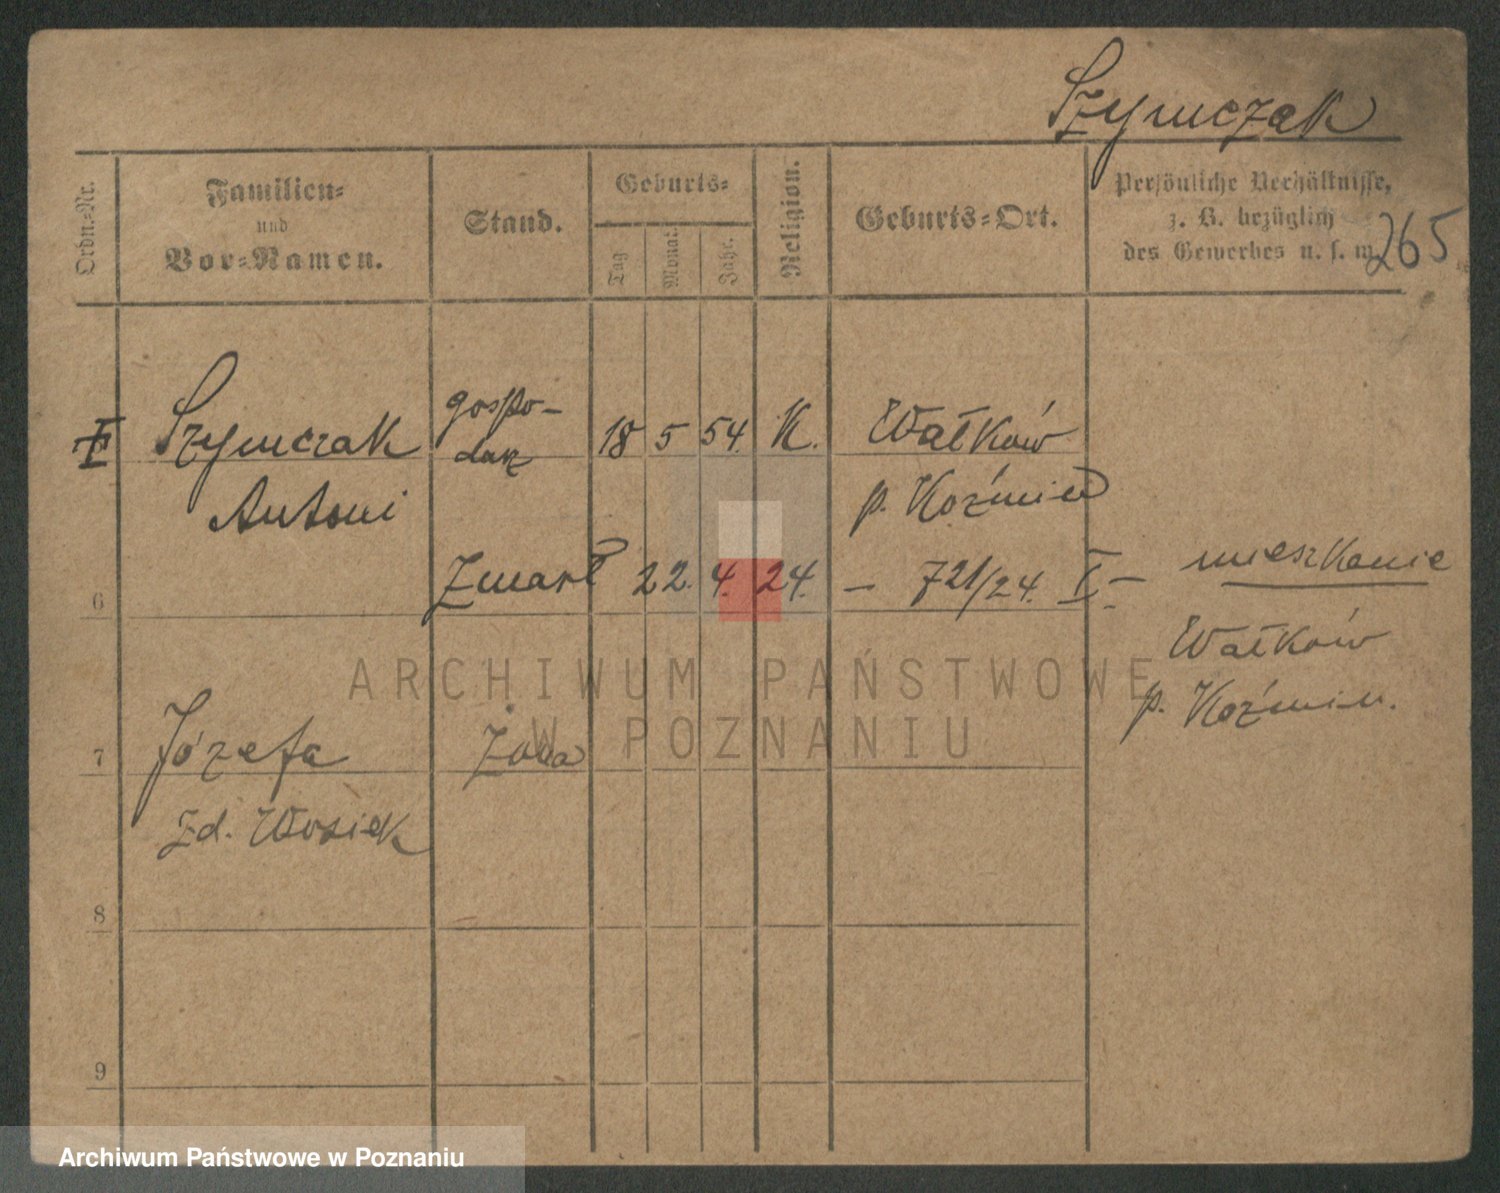 Szymczak
Ordn.-Nr.
Familien-
und
Vor-Namen.
Stand.
Geburts-
Tag
Monat
Jahr.
Religion.
Geburts-Ort.
Persönliche Verhältnisse,
z. B. bezüglich
des Gewerbes u. s. w.
265
Szymczak gospo- 18 5 54. K. Wałków
darz
Antoni p. Koźmin
Zmarł 22. 4. 24. — 721/24. — mieszkanie
6
Wałków
p. Koźmin.
7 Józefa żona
zd. Wosiek
8
9
ARCHIWUM PAŃSTWOWE
W POZNANIU
Archiwum Państwowe w Poznaniu